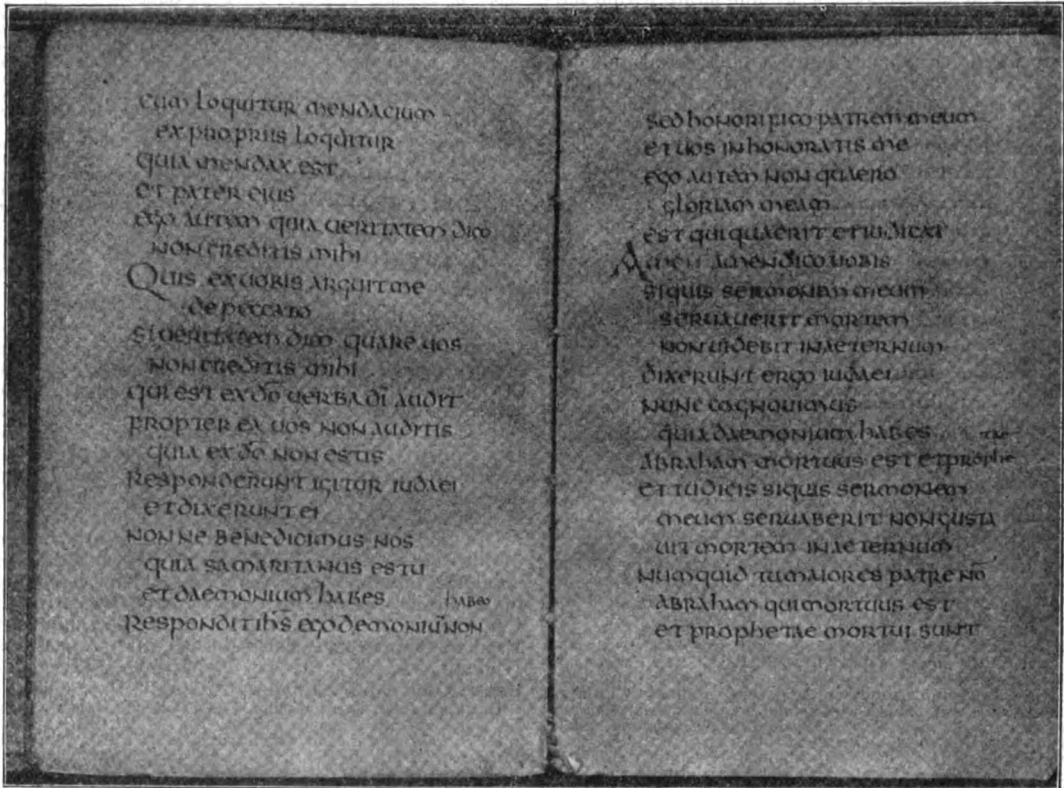 cum loquitur mendacium
ex propriis loquitur
quia mendax est
et pater eius
ego autem quia ueritatem dico
non creditis mihi
Quis ex uobis arguit me
de peccato
si ueritatem dico quare uos
non creditis mihi
qui est ex dō uerba dī audit
propter ea uos non auditis
quia ex dō non estis
Responderunt igitur iudaei
et dixerunt ei
non ne benedicimus nos
quia samaritanus es tu
et daemonium habes
habeo
Respondit ih̄s ego demoniū non
sed honorifico patrem meum
et uos inhonoratis me
ego autem non quaero
gloriam meam
est qui quaerit et iudicat
Amen amen dico uobis
si quis sermonem meum
seruauerit mortem
non uidebit in aeternum
dixerunt ergo iudaei
nunc cognouimus
quia daemonium habes
tae
Abraham mortuus est et prophe
et tu dicis si quis sermonem
meum seruaberit non gusta
uit mortem in aeternum
numquid tu maiores patre nō
Abraham qui mortuus est
et prophetae mortui sunt